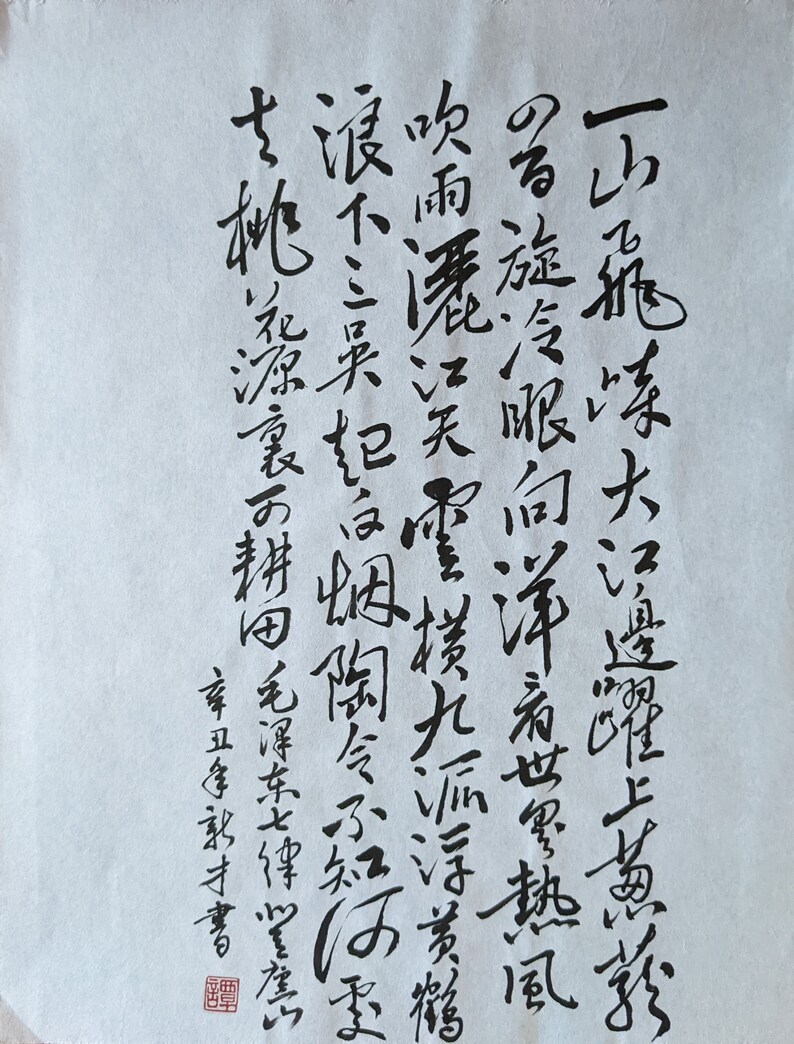 一山飛峙大江邊躍上葱蘢
四百旋冷眼向洋看世界熱風
吹雨灑江天雲横九派浮黄鶴
浪下三吳起白烟陶令不知何處
去桃花源裏可耕田
毛泽东七律登廬山
辛丑年新才書
譚